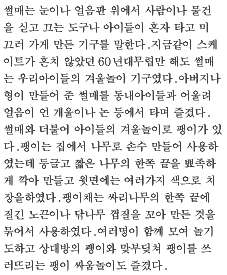 썰매는 눈이나 얼음판 위에서 사람이나 물건
을 싣고 끄는 도구나 아이들이 혼자 타고 미
끄러 가게 만든 기구를 말한다.지금같이 스케
이트가 흔치 않았던 60년대무렵만 해도 썰매
는 우리아이들의 겨울놀이 기구였다.아버지나
형이 만들어 준 썰매를 동내아이들과 어울려
얼음이 언 개울이나 논 등에서 타며 즐겼다.
썰매와 더불어 아이들의 겨울놀이로 팽이가 있
다.팽이는 집에서 나무로 손수 만들어 사용하
였는데 둥글고 짧은 나무의 한쪽 끝을 뾰족하
게 깍아 만들고 윗면에는 여러가지 색으로 치
장을하였다.팽이채는 싸리나무의 한쪽 끝에
질긴 노끈이나 닥나무 껍질을 꼬아 만든 것을
묶어서 사용하였다.여러명이 함께 모여 놀기
도하고 상대방의 팽이와 맞부딪쳐 팽이를 쓰
러뜨리는 팽이 싸움놀이도 즐겼다.